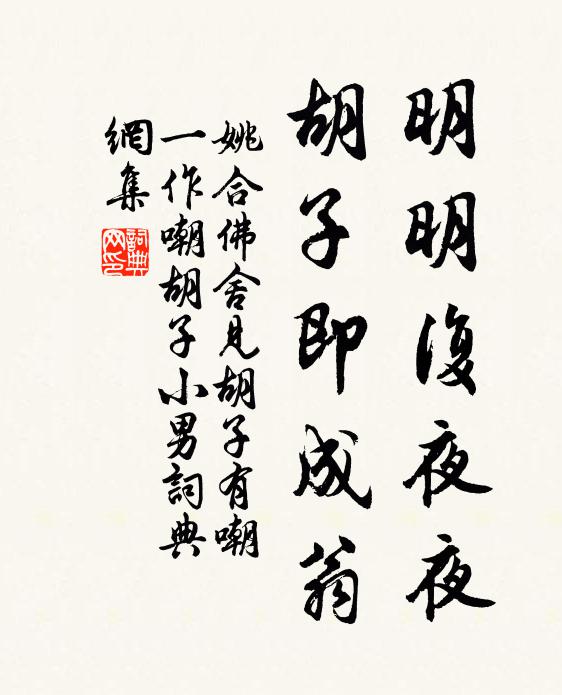 明明復夜夜
胡子即成翁
姚合佛舍見胡子有嘲
一作嘲胡子小男詞典
網集
詞典
网印